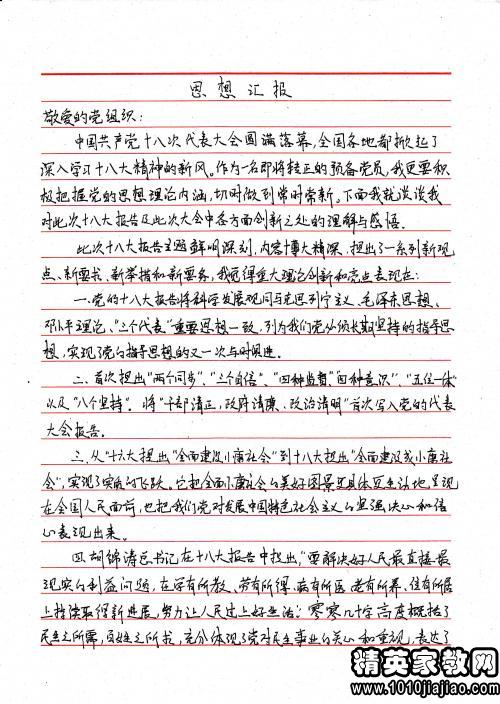 思想汇报
敬爱的党组织:
中国共产党十八次代表大会圆满落幕,全国各地都掀起了
深入学习十八大精神的新风。作为一名即将转正的预备党员,我更要积
极把握党的思想理论内涵,切时做到常时常新。下面我就谈谈我
对此次十八大报告及此次大会中各方面创新之处的理解与感悟。
此次十八大报告主题鲜明深刻,内容博大精深,提出了一系列新观
点、新要求、新举措和新要务,我觉得重大理论创新和亮点表现在:
一.党的十八大报告将科学发展观同马克思列宁主义、毛泽东思想、
邓小平理论、"三个代表"重要思想一致,列为我们党必须长期坚持的指导思
想,实现了党的指导思想的又一次与时俱进。
二.首次提出"两个同步"、"三个自信"、"四种监督""四种意识"、"五位一体"
以及"八个坚持"。将"干部清正,政府清廉,政治清明"首次写入党的代表
大会报告。
三.从"十六大提出"全面建设小康社会"到十八大提出"全面建成小康社
会",实现了实质的飞跃。它把全面小康社会的美好图景更具体更生动地呈现
在全国人民面前,也把我们党对发展中国特色社会主义的坚强决心和信
心表现出来。
四.胡锦涛总书记在十八大报告中提出,"要解决好人民最直接最
现实的利益问题,在学有所教、劳有所得、病有所医、老有所养、住有所居
上持续取得新进展,努力让人民过上好生活;零零几十字高度概括了
民生之所需,百姓之所求,充分体现了党对民生事业的关心和重视,表达了
精英家教网
www.1010jiajiao.com